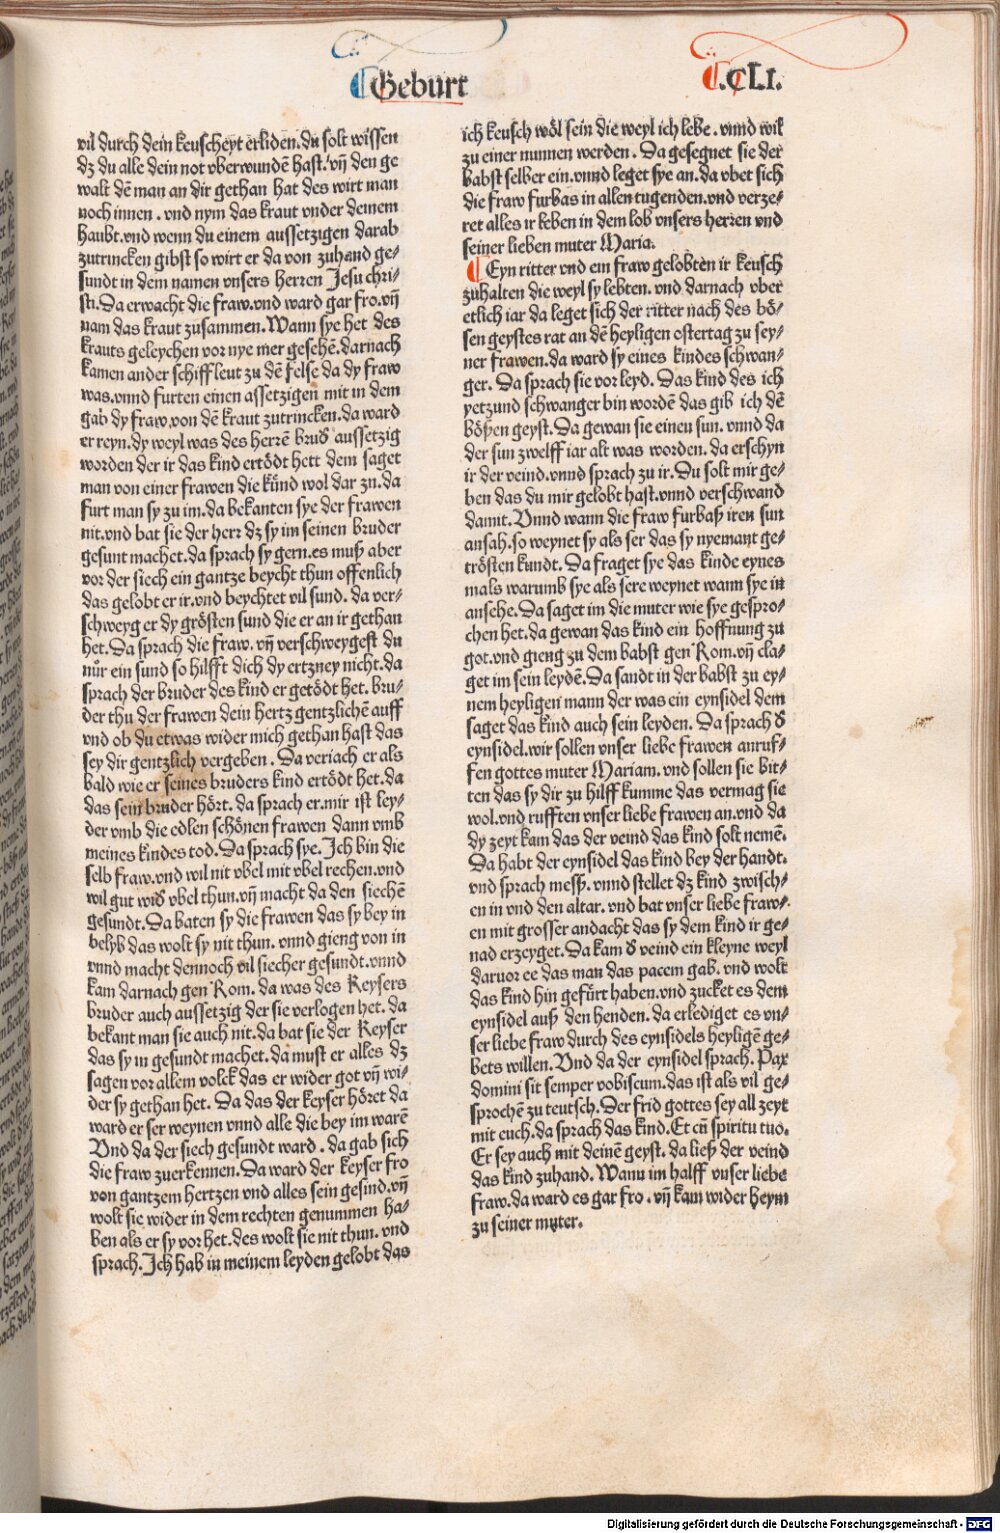 Geburt
.CLI.
vil durch dein keuscheyt erliden.du solt wissen
dz du alle dein not vberwundē hast.vñ den ge
walt dē man an dir gethan hat des wirt man
noch innen . vnd nym das kraut vnder deinem
haubt.vnd wenn du einem aussetzigen darab
zutrincken gibst so wirt er da von zuhand ge⸗
sundt in dem namen vnsers herren Jesu chri⸗
sti.Da erwacht die fraw.vnd ward gar fro.vñ
nam das kraut zusammen.Wann sye het des
krauts geleychen vor nye mer gesehē.darnach
kamen ander schiffleut zu dē felse da dy fraw
was.vnnd furten einen assetzigen mit in dem
gab dy fraw.von dē kraut zutrincken.da ward
er reyn.dy weyl was des herrē brud̕ aussetzig
worden der ir das kind ertödt hett dem saget
man von einer frawen die künd wol dar zu.da
furt man sy zu im.da bekanten sye der frawen
nit.vnd bat sie der herr dz sy im seinen bruder
gesunt machet.da sprach sy gern.es muß aber
vor der siech ein gantze beycht thun offenlich
das gelobt er ir.vnd beychtet vil sund. da ver⸗
schweyg er dy grösten sund die er an ir gethan
het.Da sprach die fraw. vñ verschweygest du
nür ein sund so hilfft dich dy ertzney nicht.da
sprach der bruder des kind er getödt het. bru⸗
der thu der frawen dein hertz gentzlichē auff
vnd ob du etwas wider mich gethan hast das
sey dir gentzlich vergeben . Da veriach er als
bald wie er seines bruders kind ertödt het.da
das sein bruder hört. da sprach er.mir ist ley⸗
der vmb die edlen schönen frawen dann vmb
meines kindes tod.Da sprach sye.Ich bin die
selb fraw.vnd wil nit vbel mit vbel rechen.vnd
wil gut wid̕ vbel thun.vñ macht da den siechē
gesundt.Da baten sy die frawen das sy bey in
belyb das wolt sy nit thun. vnnd gieng von in
vnnd macht dennoch vil siecher gesundt.vnnd
kam darnach gen Rom. da was des Keysers
bruder auch aussetzig der sie verlogen het. da
bekant man sie auch nit.da bat sie der Keyser
das sy in gesundt machet.da must er alles dz
sagen vor allem volck das er wider got vñ wi⸗
der sy gethan het. Da das der keyser höret da
ward er ser weynen vnnd alle die bey im warē
Vnd da der siech gesundt ward . da gab sich
die fraw zuerkennen.Da ward der keyser fro
von gantzem hertzen vnd alles sein gesind.vñ
wolt sie wider in dem rechten genummen ha⸗
ben als er sy vor het.des wolt sie nit thun. vnd
sprach.Ich hab in meinem leyden gelobt das
ich keusch wöl sein die weyl ich lebe . vnnd wil
zu einer nunnen werden . Da gesegnet sie der
babst selber ein.vnnd leget sye an.da vbet sich
die fraw furbas in allen tugenden.vnd verze⸗
ret alles ir leben in dem lob vnsers herren vnd
seiner lieben muter Maria.
Eyn ritter vnd ein fraw gelobten ir keusch
zuhalten die weyl sy lebten. vnd darnach vber
etlich iar da leget sich der ritter nach des bö⸗
sen geystes rat an dē heyligen ostertag zu sey⸗
ner frawen.da ward sy eines kindes schwan⸗
ger. Da sprach sie vor leyd. Das kind des ich
yetzund schwanger bin wordē das gib ich dē
bößen geyst.Da gewan sie einen sun. vnnd da
der sun zwelff iar alt was worden. da erschyn
ir der veind.vnnd sprach zu ir.Du solt mir ge⸗
ben das du mir gelobt hast.vnnd verschwand
damit. Vnnd wann die fraw furbaß iren sun
ansah.so weynet sy als ser das sy nyemant ge⸗
trösten kundt. Da fraget sye das kinde eynes
mals warumb sye als sere weynet wann sye in
ansehe.Da saget im die muter wie sye gespro⸗
chen het.da gewan das kind ein hoffnung zu
got.vnd gieng zu dem babst gen Rom.vñ cla⸗
get im sein leydē.Da sandt in der babst zu ey⸗
nem heyligen mann der was ein eynsidel dem
saget das kind auch sein leyden. Da sprach d̕
eynsidel.wir sollen vnser liebe frawen anruf⸗
fen gottes muter Mariam. vnd sollen sie bit⸗
ten das sy dir zu hilff kumme das vermag sie
wol.vnd rufften vnser liebe frawen an.vnd da
dy zeyt kam das der veind das kind solt nemē.
Da habt der eynsidel das kind bey der handt.
vnd sprach mess. vnnd stellet dz kind zwisch⸗
en in vnd den altar. vnd bat vnser liebe fraw⸗
en mit grosser andacht das sy dem kind ir ge⸗
nad erzeyget.Da kam d̕ veind ein kleyne weyl
daruor ee das man das pacem gab. vnd wolt
das kind hin gefürt haben.vnd zucket es dem
eynsidel auß den henden. da erlediget es vn⸗
ser liebe fraw durch des eynsidels heyligē ge⸗
bets willen. Vnd da der eynsidel sprach. Pax
domini sit semper vobiscum.das ist als vil ge⸗
sprochē zu teutsch.Der frid gottes sey all zeyt
mit euch.da sprach das kind.Et cū spiritu tuo.
Er sey auch mit deinē geyst. da ließ der veind
das kind zuhand. Wann im halff vnser liebe
fraw.da ward es gar fro . vñ kam wider heym
zu seiner muter.
Digitalisierung gefördert durch die Deutsche Forschungsgemeinschaft - DFG